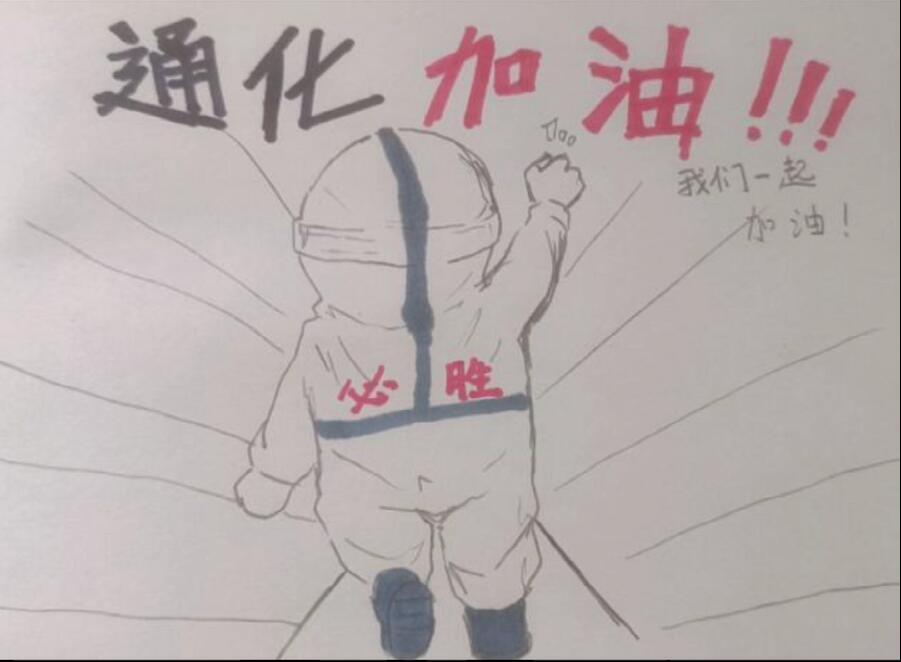 通化加油!!!
我们一起
加油!
必胜